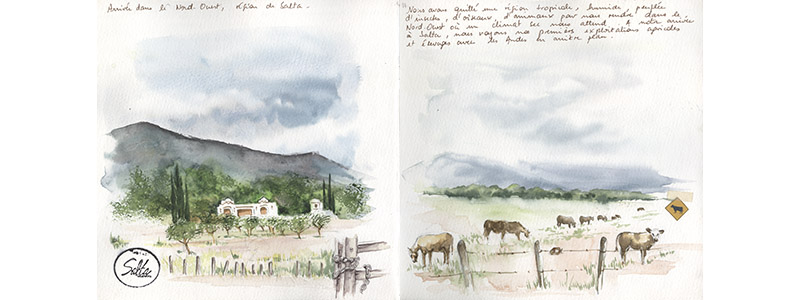 Arrivée dans le Nord. Ouest, région de Salta.
Nous avons quitté une région tropicale, humide, peuplée
d'insectes, d'oiseaux d'animaux pour nous rendre dans le
Nord-Ouest où un climat sec nous attend. A notre arrivée
à Salta, nous voyons nos premières exploitations agricoles
et élevages avec les Andes en arrière plan.
Salta